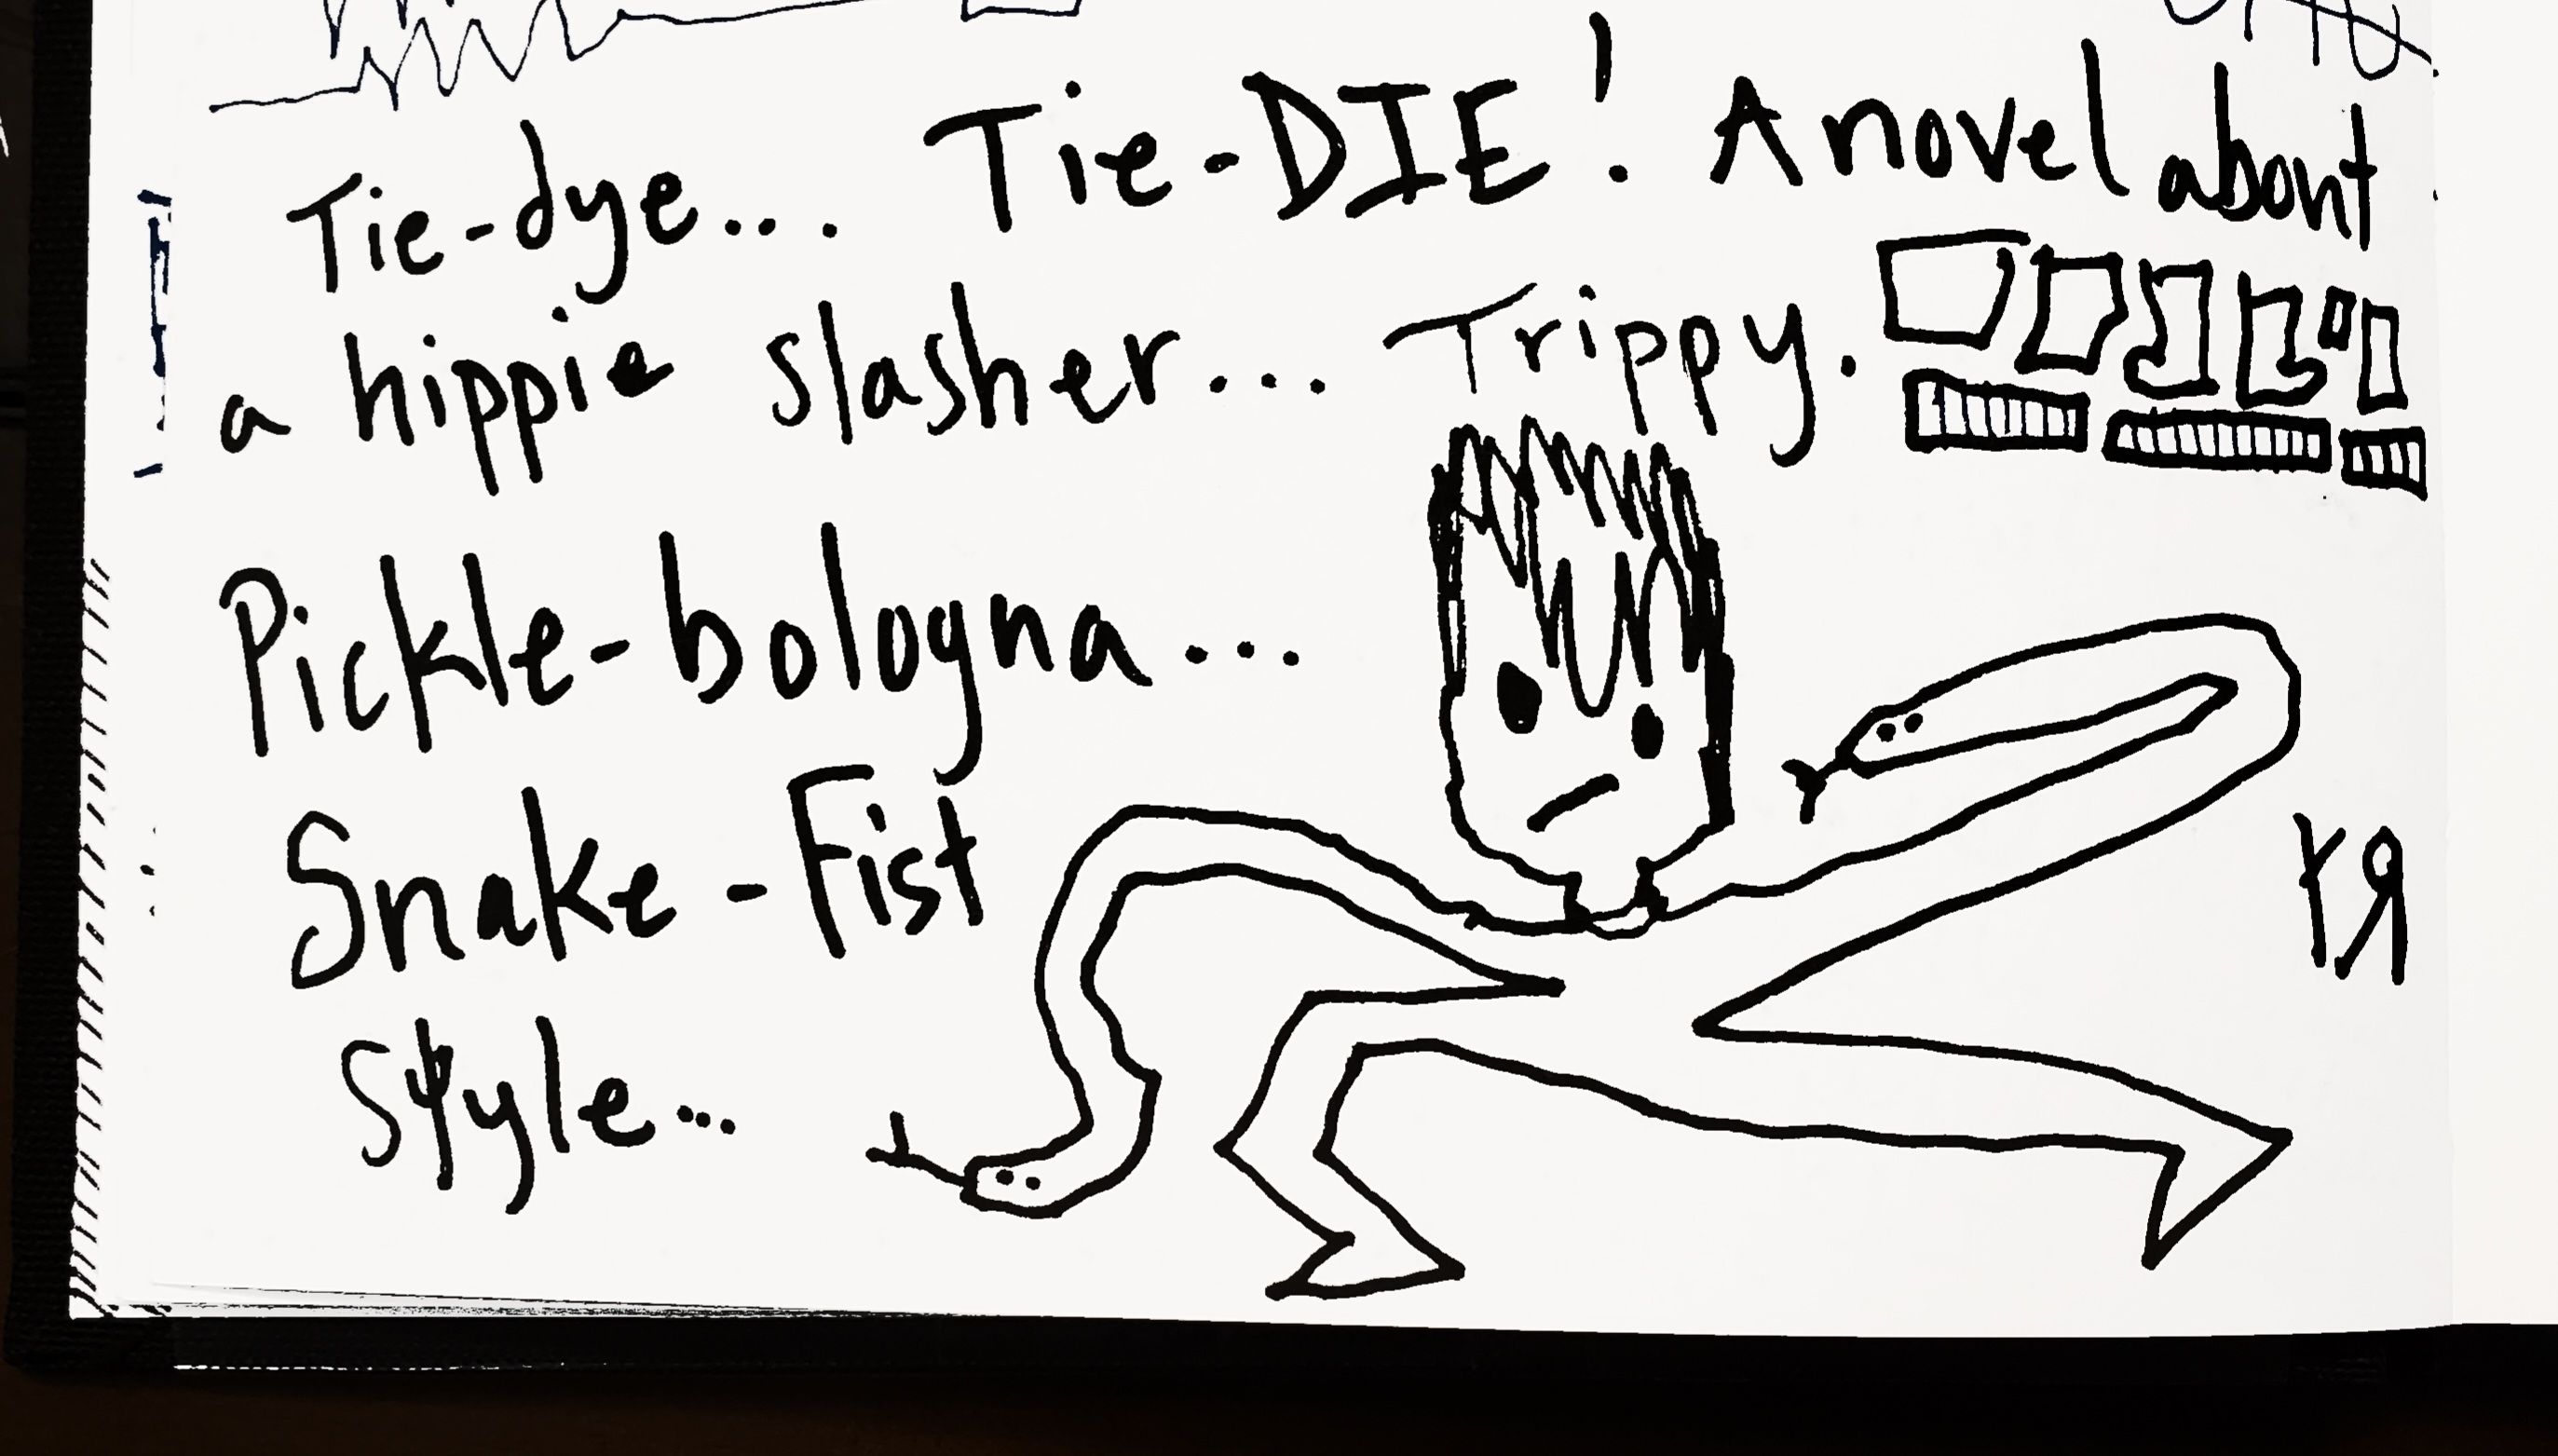 Tie-dye... Tie-DIE! A novel about
a hippie slasher... Trippy.
Pickle-bologna...
Snake-Fist
Style...